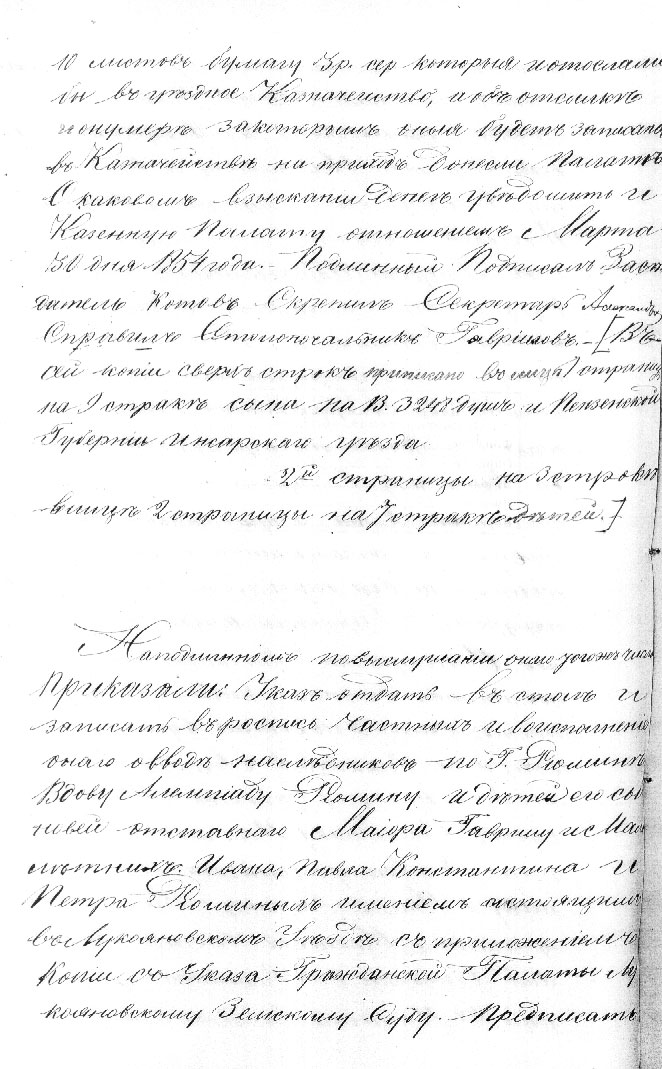 10 листовъ бумагу 3 р. сер которыя и отослали
бы въ уѣздное Казначейство, и объ отсылкѣ
и о нумерѣ за которымъ оныя будетъ записаны
въ Казначействѣ на приходъ донесли Палатѣ
О каковомъ взысканіи денегъ увѣдомить и
Казенную Палату отношеніемъ Марта
30 дня 1854 года. – Подлинный Подписалъ Засѣ
датель Котовъ Скрепилъ Секретарь Александровъ
Справилъ Столоночальникъ Гавриловъ. – [Въ
ай копіи сверхъ строкъ приписано въ лицѣ 1 страниц
на 9 стракѣ сына на В. 3248 душъ и Пензенской
Губерніи Инсарскаго уѣзда
2й страницы на 3 строкѣ
влицѣ 2 страницы на 7 стракѣ дѣтей.]
На подлинномъ повыслушаніи онаго тогожъ числа
Приказали: Указъ отдать въ столъ и
записать въ роспись частныхъ и во исполнение
онаго о вводѣ наслѣдниковъ по Г. Рюминѣ
Вдову Алимпіаду Рюмину и дѣтей его сы
новей отставнаго Маіора Гаврилу и Мало
лѣтнихъ: Ивана, Павла Константина и
Петра Рюминыхъ имѣніемъ состоящимъ
въ Лукояновскомъ Уѣздѣ съ приложеніемъ
Копіи съ Указа Гражданской Палаты Лу
кояновскому Земскому Суду. – Предписать